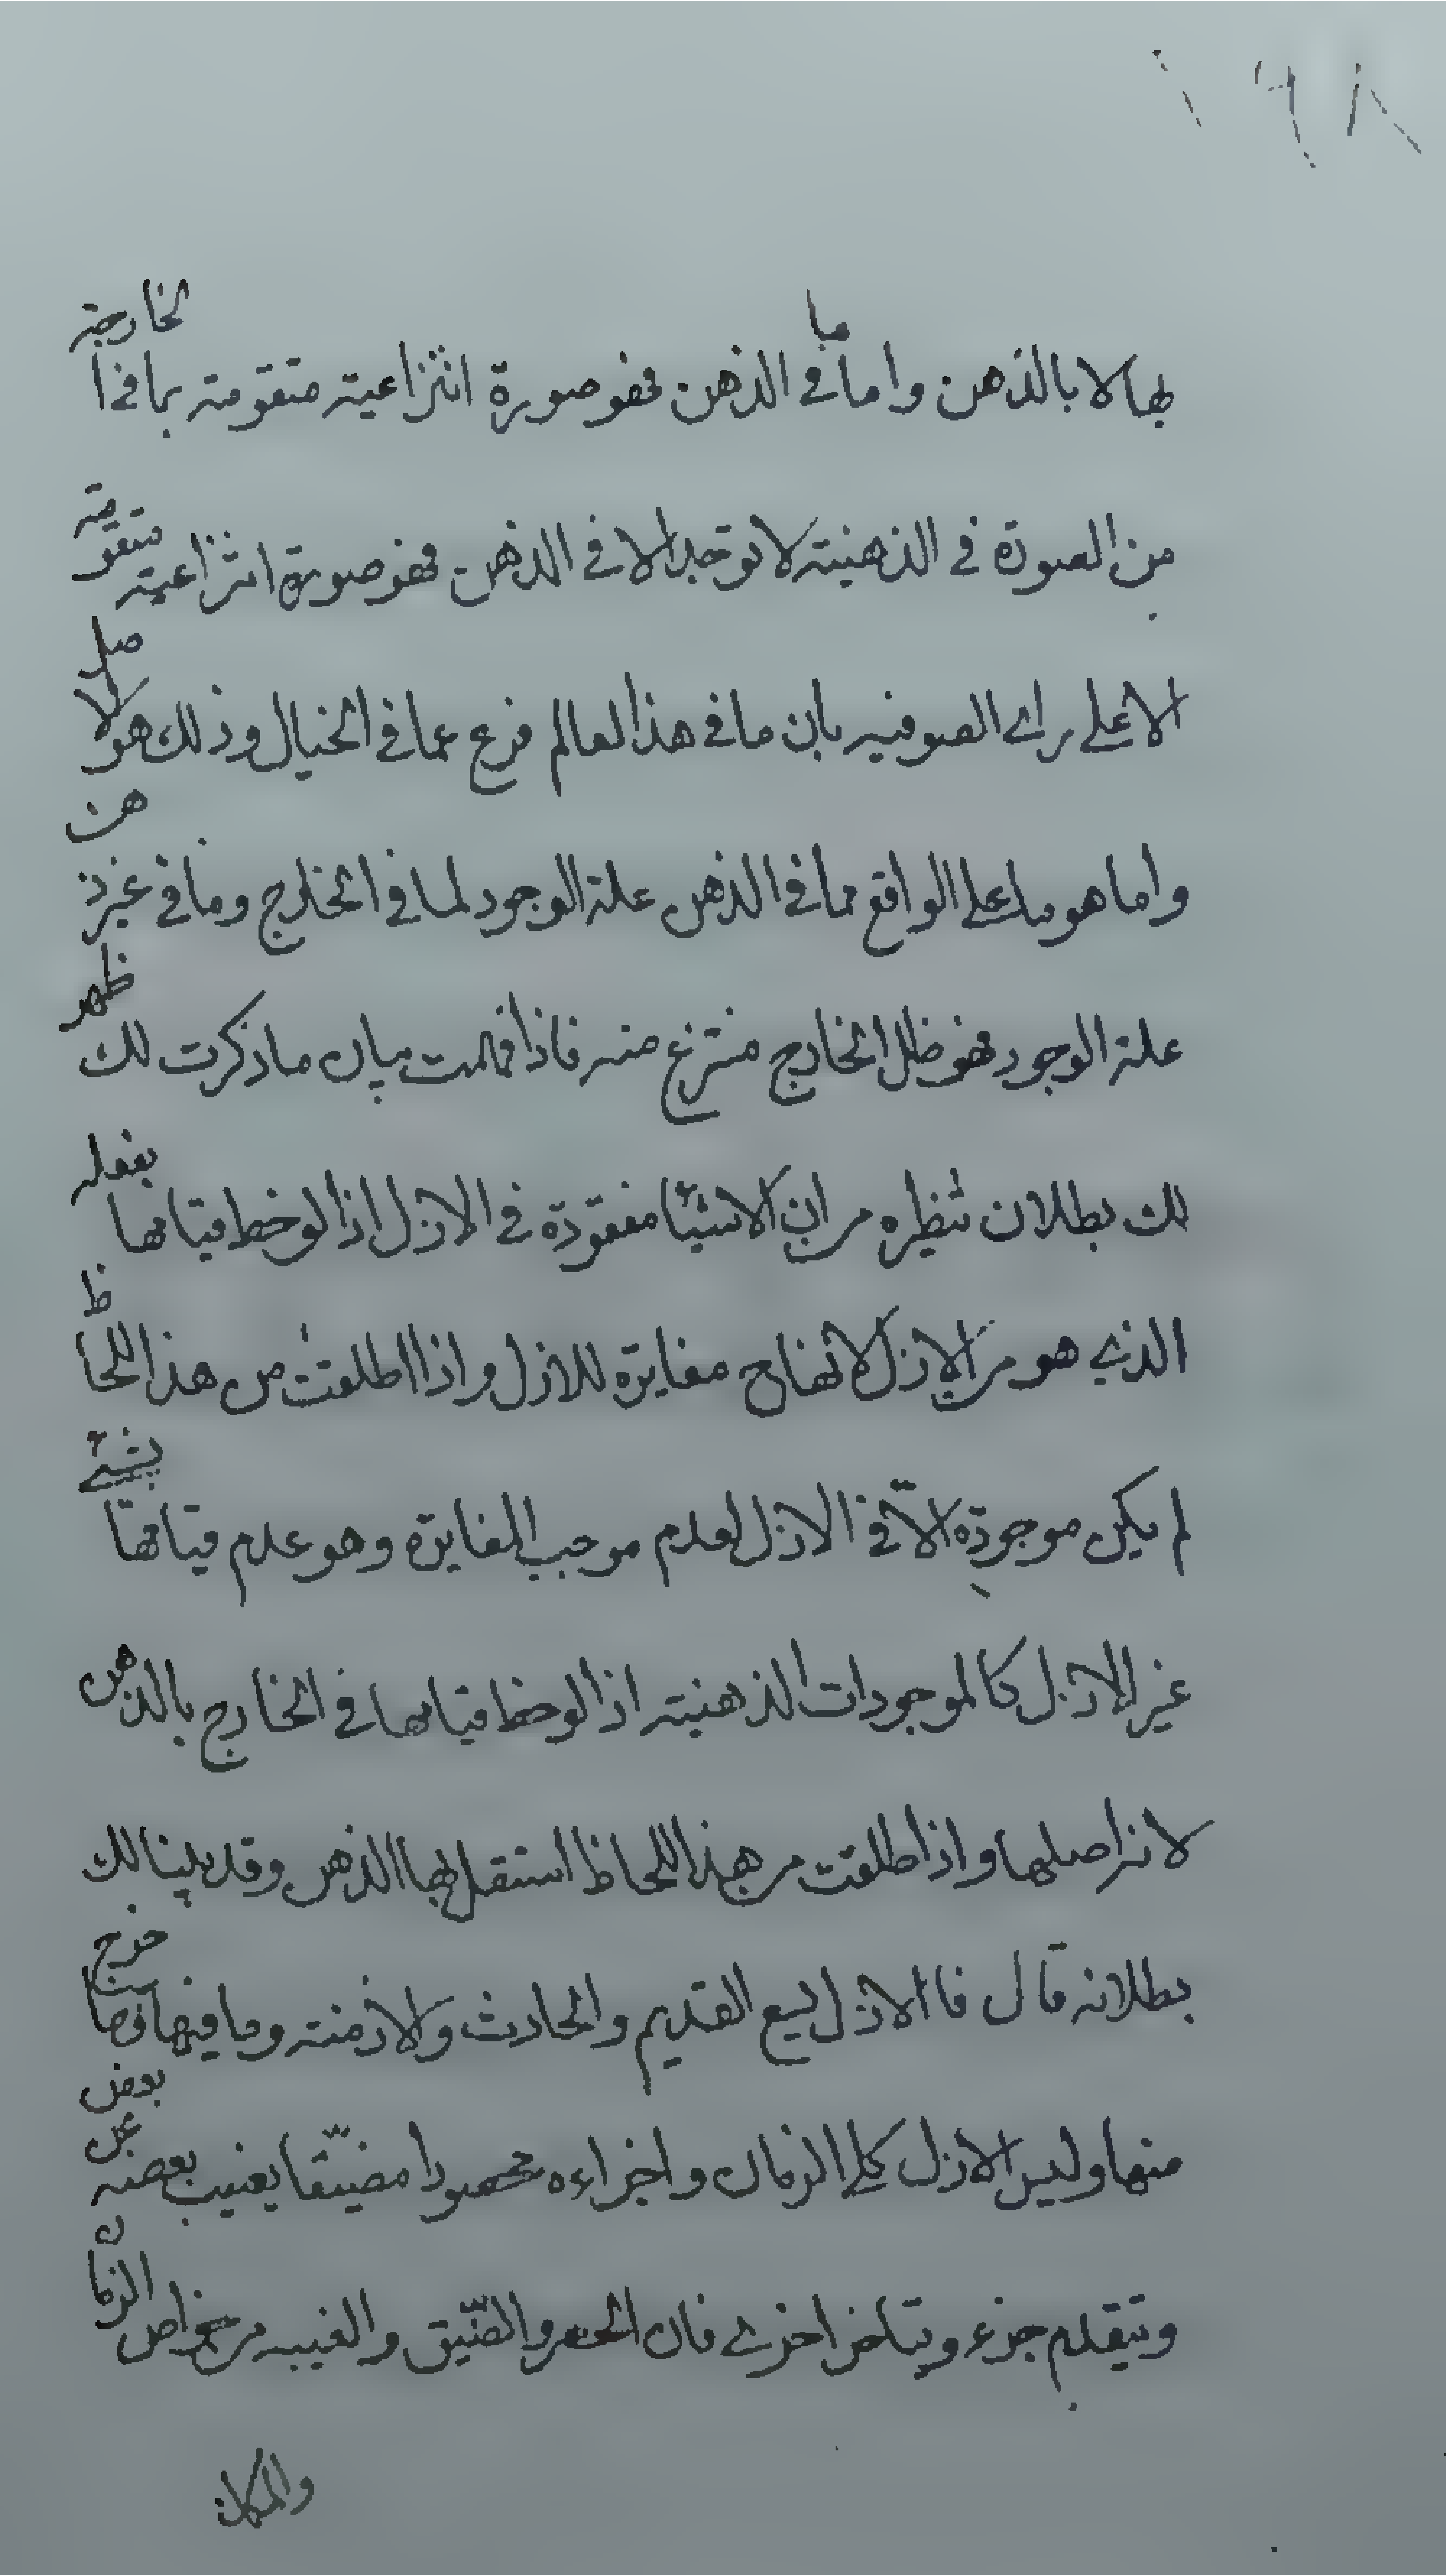 بها لا بالذهن واما ما في الذهن فهو صورة انتزاعية متقومة بما في الخارجية
من الصورة في الذهنية لا توجد الا في الذهن فهو صورة انتزاعية متقومة
الا على راى الصوفيه بان ما في هذا العالم فرع عما في الخيال وذلك هو لا صل
واما هو ما على الواقع مما في الذهن علة الوجود لما في الخارج وما في غير ذهن
علة الوجود فهو ظل الخارج منتزع منه فاذا فهمت بيان ما ذكرت لك ظهر
لك بطلان تنظيره من ان الاشيا مفقودة في الازل اذا لوحظ قيامها بفعله
الذى هو من الازل لانها ح مغايرة للازل واذا اطلقت من هذا اللحاظ
لم يكن موجودة الّا في الازل لعدم موجب المغايرة وهو عدم قيامها بشئ
غير الازل كالموجودات الذهنية اذا لوحظ قيامها في الخارج بالذهن
لانه اصلها واذا طلقت من هذا اللحاظ استقل بها الذهن وقد بينا لك
بطلانه قال فا الازل يسع القديم والحادث والازمنة وما فيها وما خرج
منها وليس الازل كالزمان واجزاءه محصورا مضيّقا يغيب بعضه عن بعض
ويتقدم جزء ويتاخر اخرى فان الحصر والضّيق والغيبه من خواص الزمان
والمكان